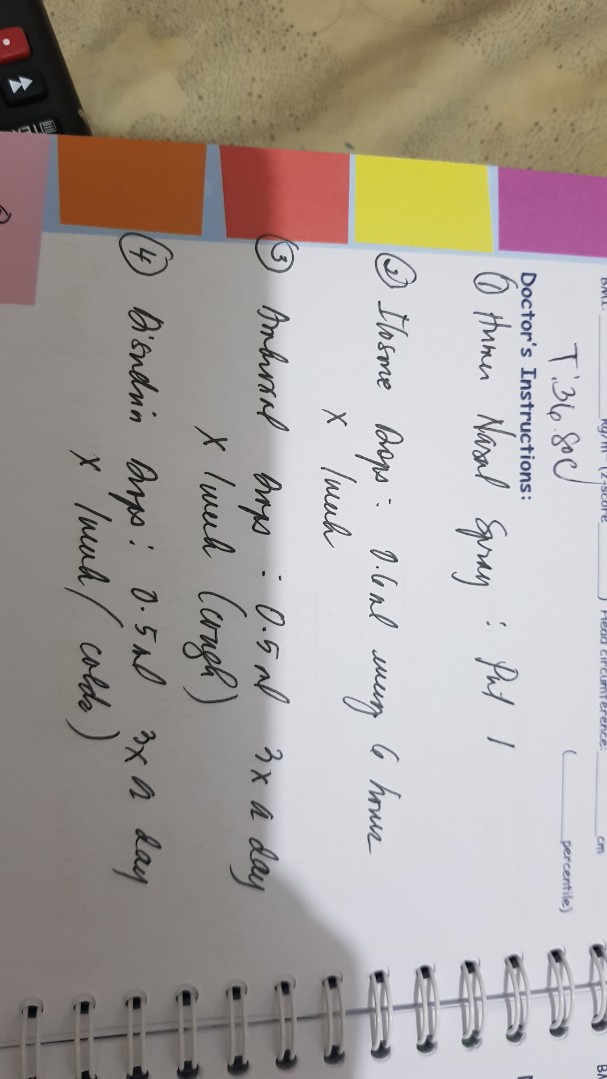 BMI: kg/m² (z-score ) Head circumference: cm
T: 36.8°C ( percentile)
Doctor's Instructions:
① Nasal Spray : Put 1
② Ilosone Drops : 0.6ml every 6 hours
x 1 week
③ Ambroxol Drops : 0.5ml 3x a day
x 1 week (cough)
④ Disudrin Drops : 0.5ml 3x a day
x 1 week (colds)